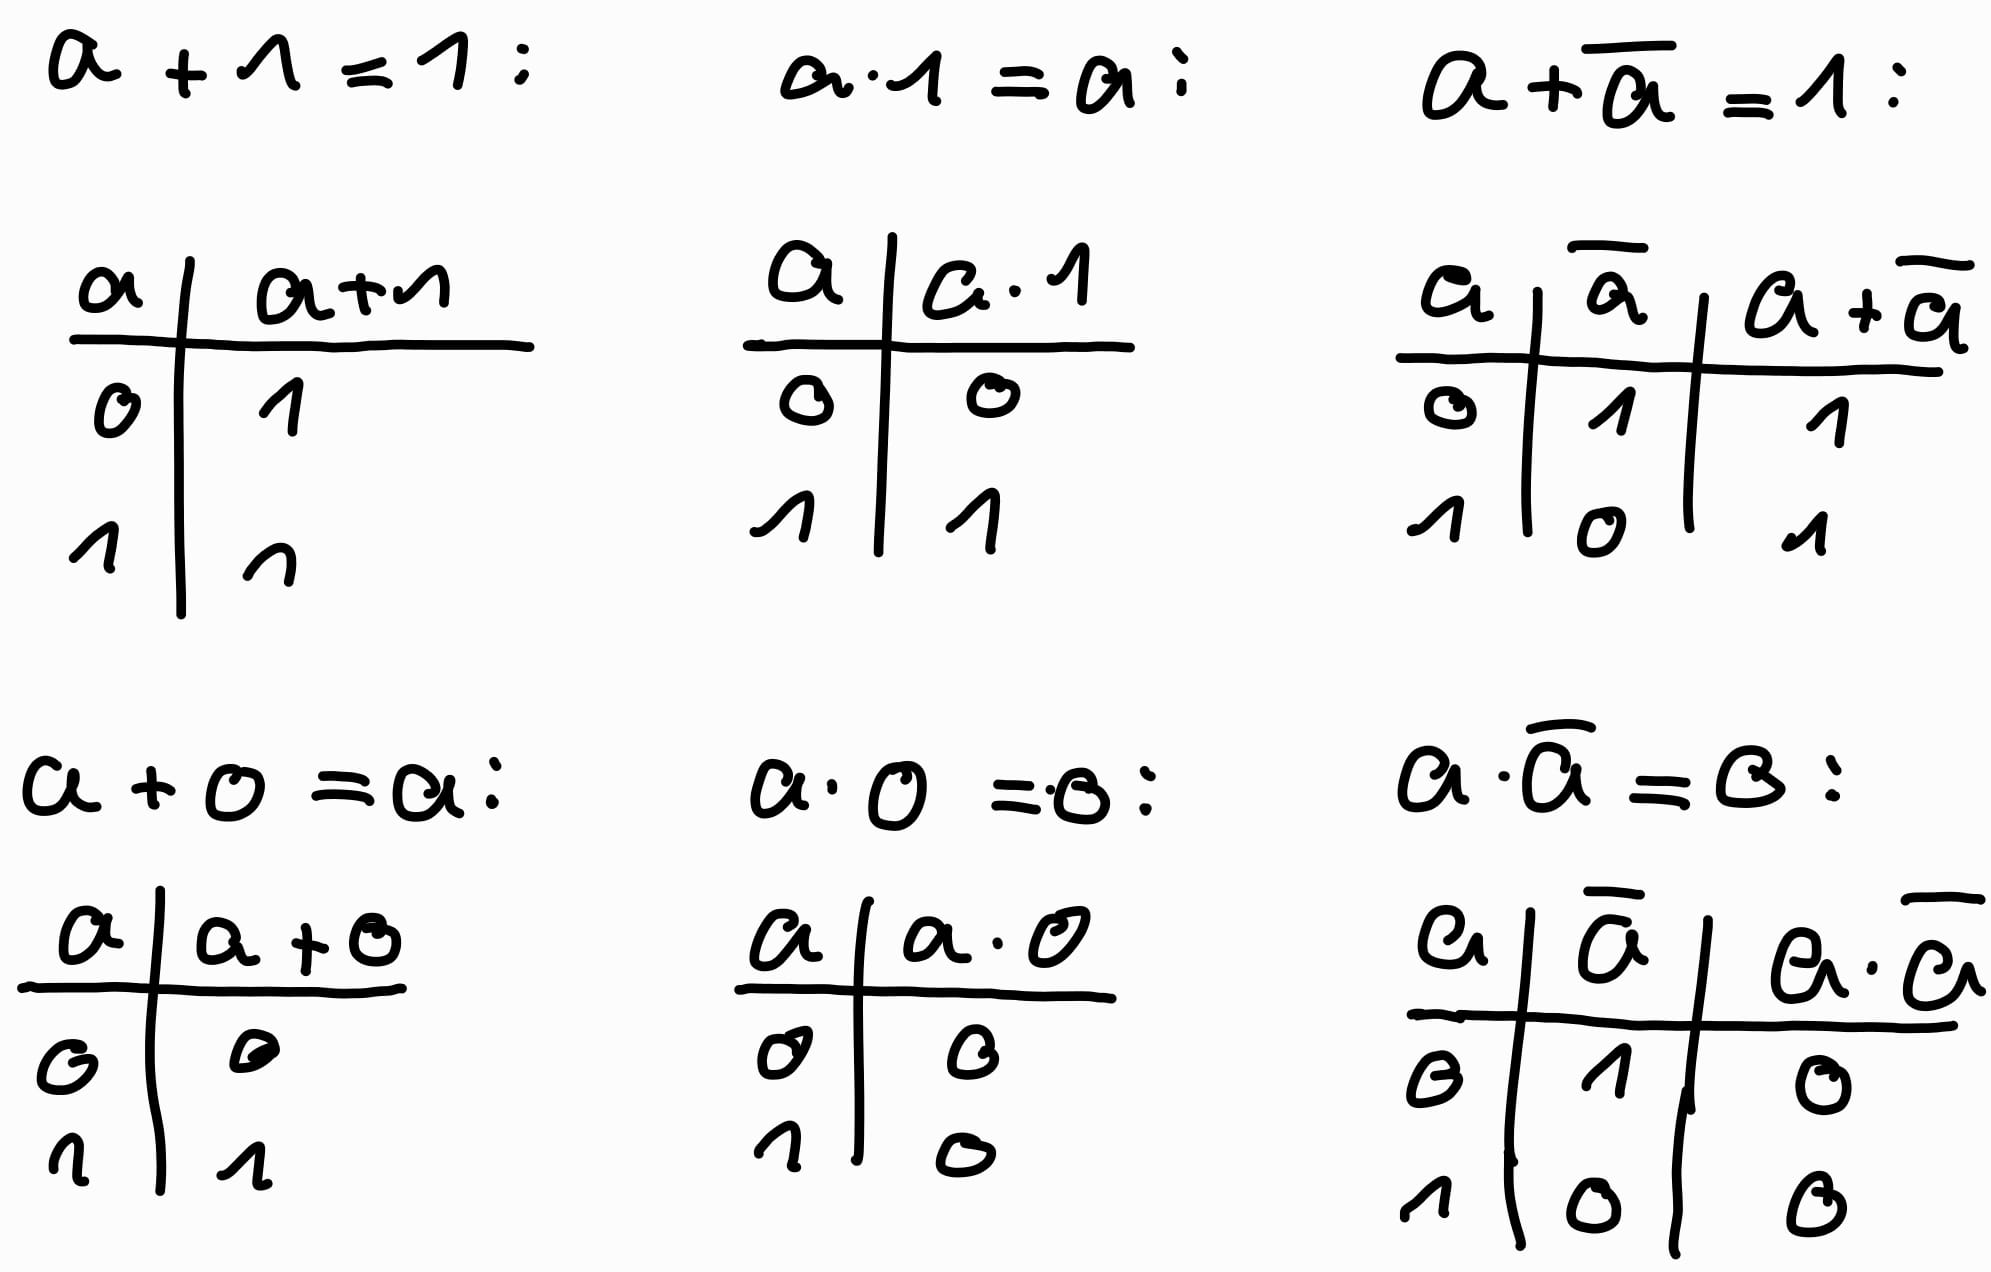 a + 1 = 1 :
a | a + 1
0 | 1
1 | 1
a · 1 = a :
a | a · 1
0 | 0
1 | 1
a + a̅ = 1 :
a | a̅ | a + a̅
0 | 1 | 1
1 | 0 | 1
a + 0 = a :
a | a + 0
0 | 0
1 | 1
a · 0 = 0 :
a | a · 0
0 | 0
1 | 0
a · a̅ = 0 :
a | a̅ | a · a̅
0 | 1 | 0
1 | 0 | 0